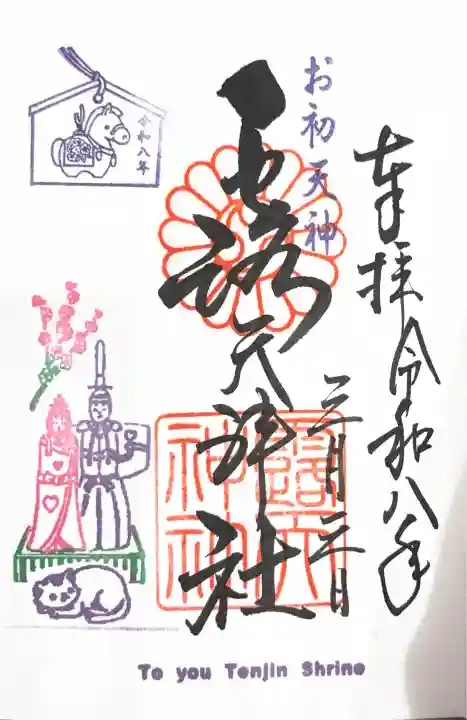 奉拝 令和八年
三月三日
お初天神
露天神社
露天
神社
令和八年
To you Tenjin Shrine